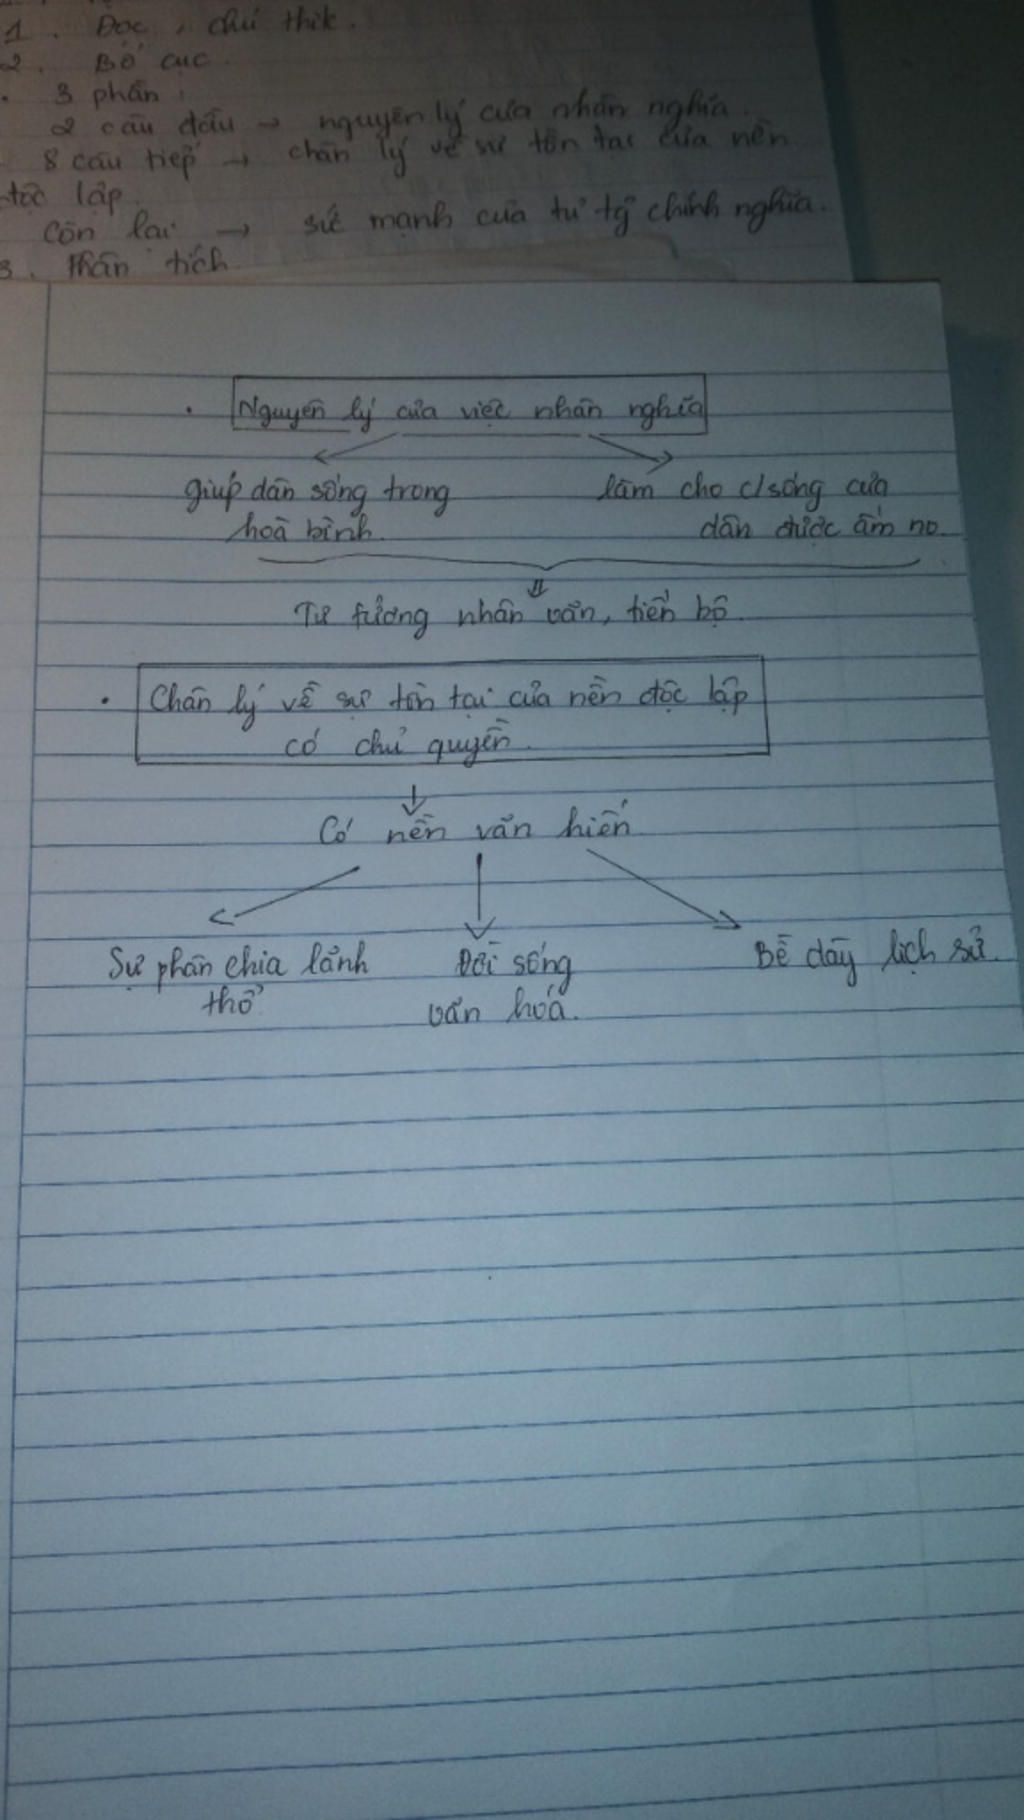 1. Đọc, chú thik.
2. Bố cục.
3 phần:
2 câu đầu → nguyên lý của nhân nghĩa.
8 câu tiếp → chân lý về sự tồn tại của nền
độc lập.
Còn lại → sức mạnh của tư tg̃ chính nghĩa.
3. Phân tích
. Nguyên lý của việc nhân nghĩa
giúp dân sống trong
hoà bình.
làm cho c/sống của
dân được ấm no.
Tư tưởng nhân văn, tiến bộ.
. Chân lý về sự tồn tại của nền độc lập
có chủ quyền.
Có nền văn hiến
Sự phân chia lãnh
thổ
Đời sống
văn hoá.
Bề dày lịch sử.